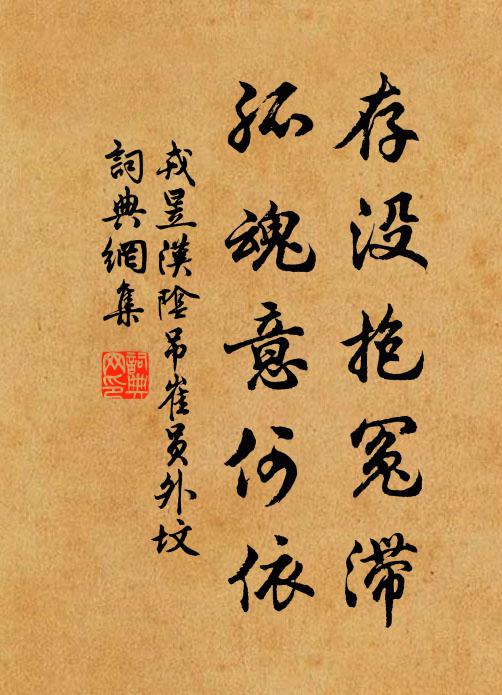 存没抱冤滞
孤魂意何依
戎昱漢陰吊崔員外坟
詞典網集
詞典网印